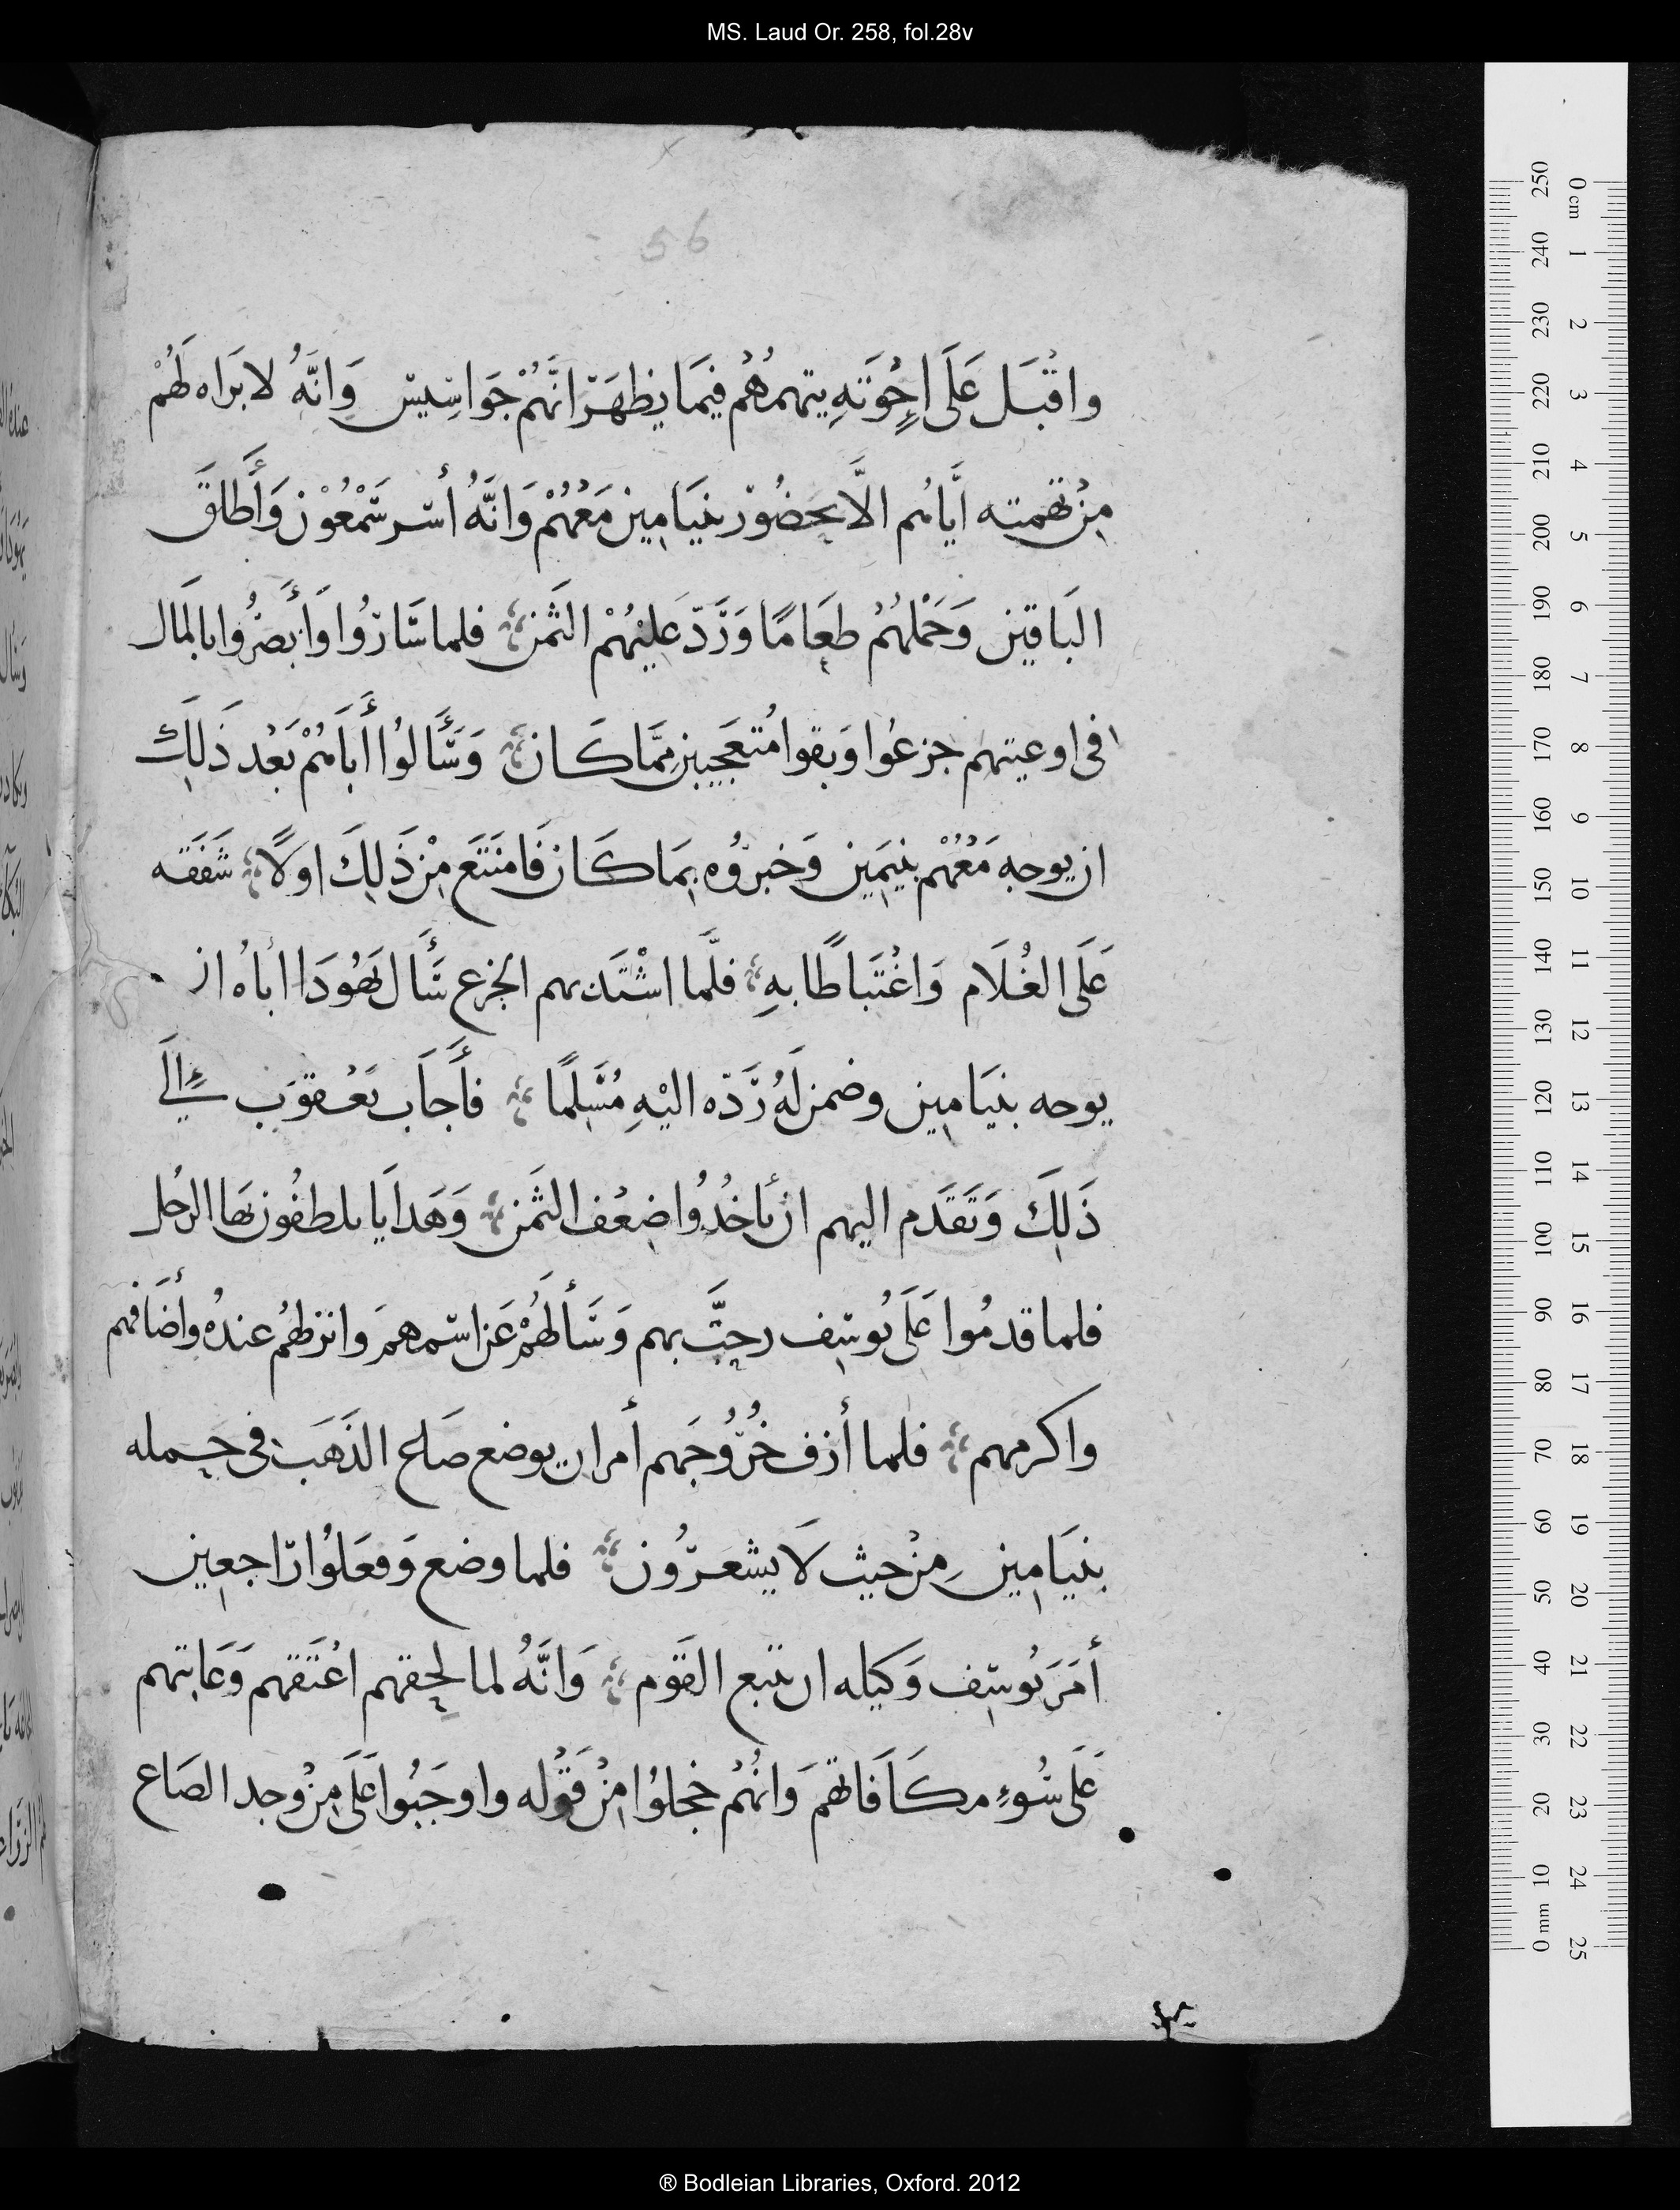 MS. Laud Or. 258, fol.28v
56
واقبَل عَلَى اخْوَتَهِ يتهمهُم فيمَا يظهَر انَّهُمْ جَوَاسِيس وَانَّهُ لا براه لَهُمْ
مِن تهمته ايَّاهم الَّا بحضُور بنيَامِين مَعَهُمْ وَانَّهُ أسر شَمْعُوْن وَأَطلقَ
البَاقين وَحَمْلَهُم طعَامًا وَرَدّ عَليْهُمْ الثَمن فلما سَارُوا وَأَبصَرُوا بالمَال
فى اوعيتهم جزعوُا وَبقوا مُتعَجبين مِمَّا كَان وَسَأَلوُا أَبَاهُمْ بَعْد ذَلِكَ
ان يوجه مَعَهُمْ بنيَمِين وَخبروُه بِمَا كَان فَامتَنَع مِنْ ذَلِكَ اولًا شَفَقه
عَلَى الغُلَام وَاغْتبَاطًا بهِ فلَّما اشْتَد بهم الجزع سَأَل يَهُودَا اباهُ ان
يوجه بنيَامِين وضمن لَهُ رَدّه اليْهِ مُسَلِمًا فأَجَاب يَعْقوَب إِلَي
ذَلِكَ وَتَقَدَم اليهم ان يأخُدُوا ضِعْف الثَمن وَهَدَايَا يلطفُون بَها الرجُل
فلما قدمُوا عَلَى يُوسِف رحَّب بهم وَسَألَهُمْ عَن اسمهم وانزلهُم عندُه وأضَافهم
واكرمهم فلما أزف خُرُوجَهم أمر ان يوضع صَاع الذَهَب فى حمله
بنيَامِين مِنْ حيث لَا يشعرُون فلما وضع وَفعَلوُا رَاجعِين
أمَرَ يُوسِف وَكيله ان يتبع القَوم وَانَّهُ لما لحِقهم اعْتَقهم وَعَاتبهم
عَلَى سُوءِ مكَافَاتهم وَانهُم خجلوُا مِنْ قَوْله واوجَبُوا عَلَى مِنْ وجد الصَاع
® Bodleian Libraries, Oxford. 2012